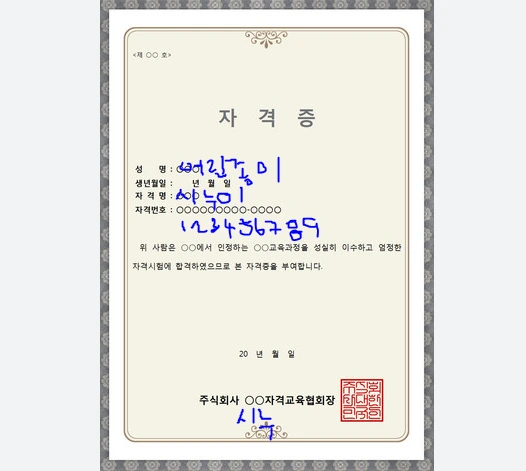 <제 ○○ 호>
자 격 증
성 명 : ○○○ 버린종이
생년월일 : 년 월 일
자 격 명 : ○○○ 시누이
자격번호 : ○○○○○○○○○-○○○○
123456789
위 사람은 ○○에서 인정하는 ○○교육과정을 성실히 이수하고 엄정한
자격시험에 합격하였으므로 본 자격증을 부여합니다.
20 년 월 일
주식회사 ○○자격교육협회장
시누